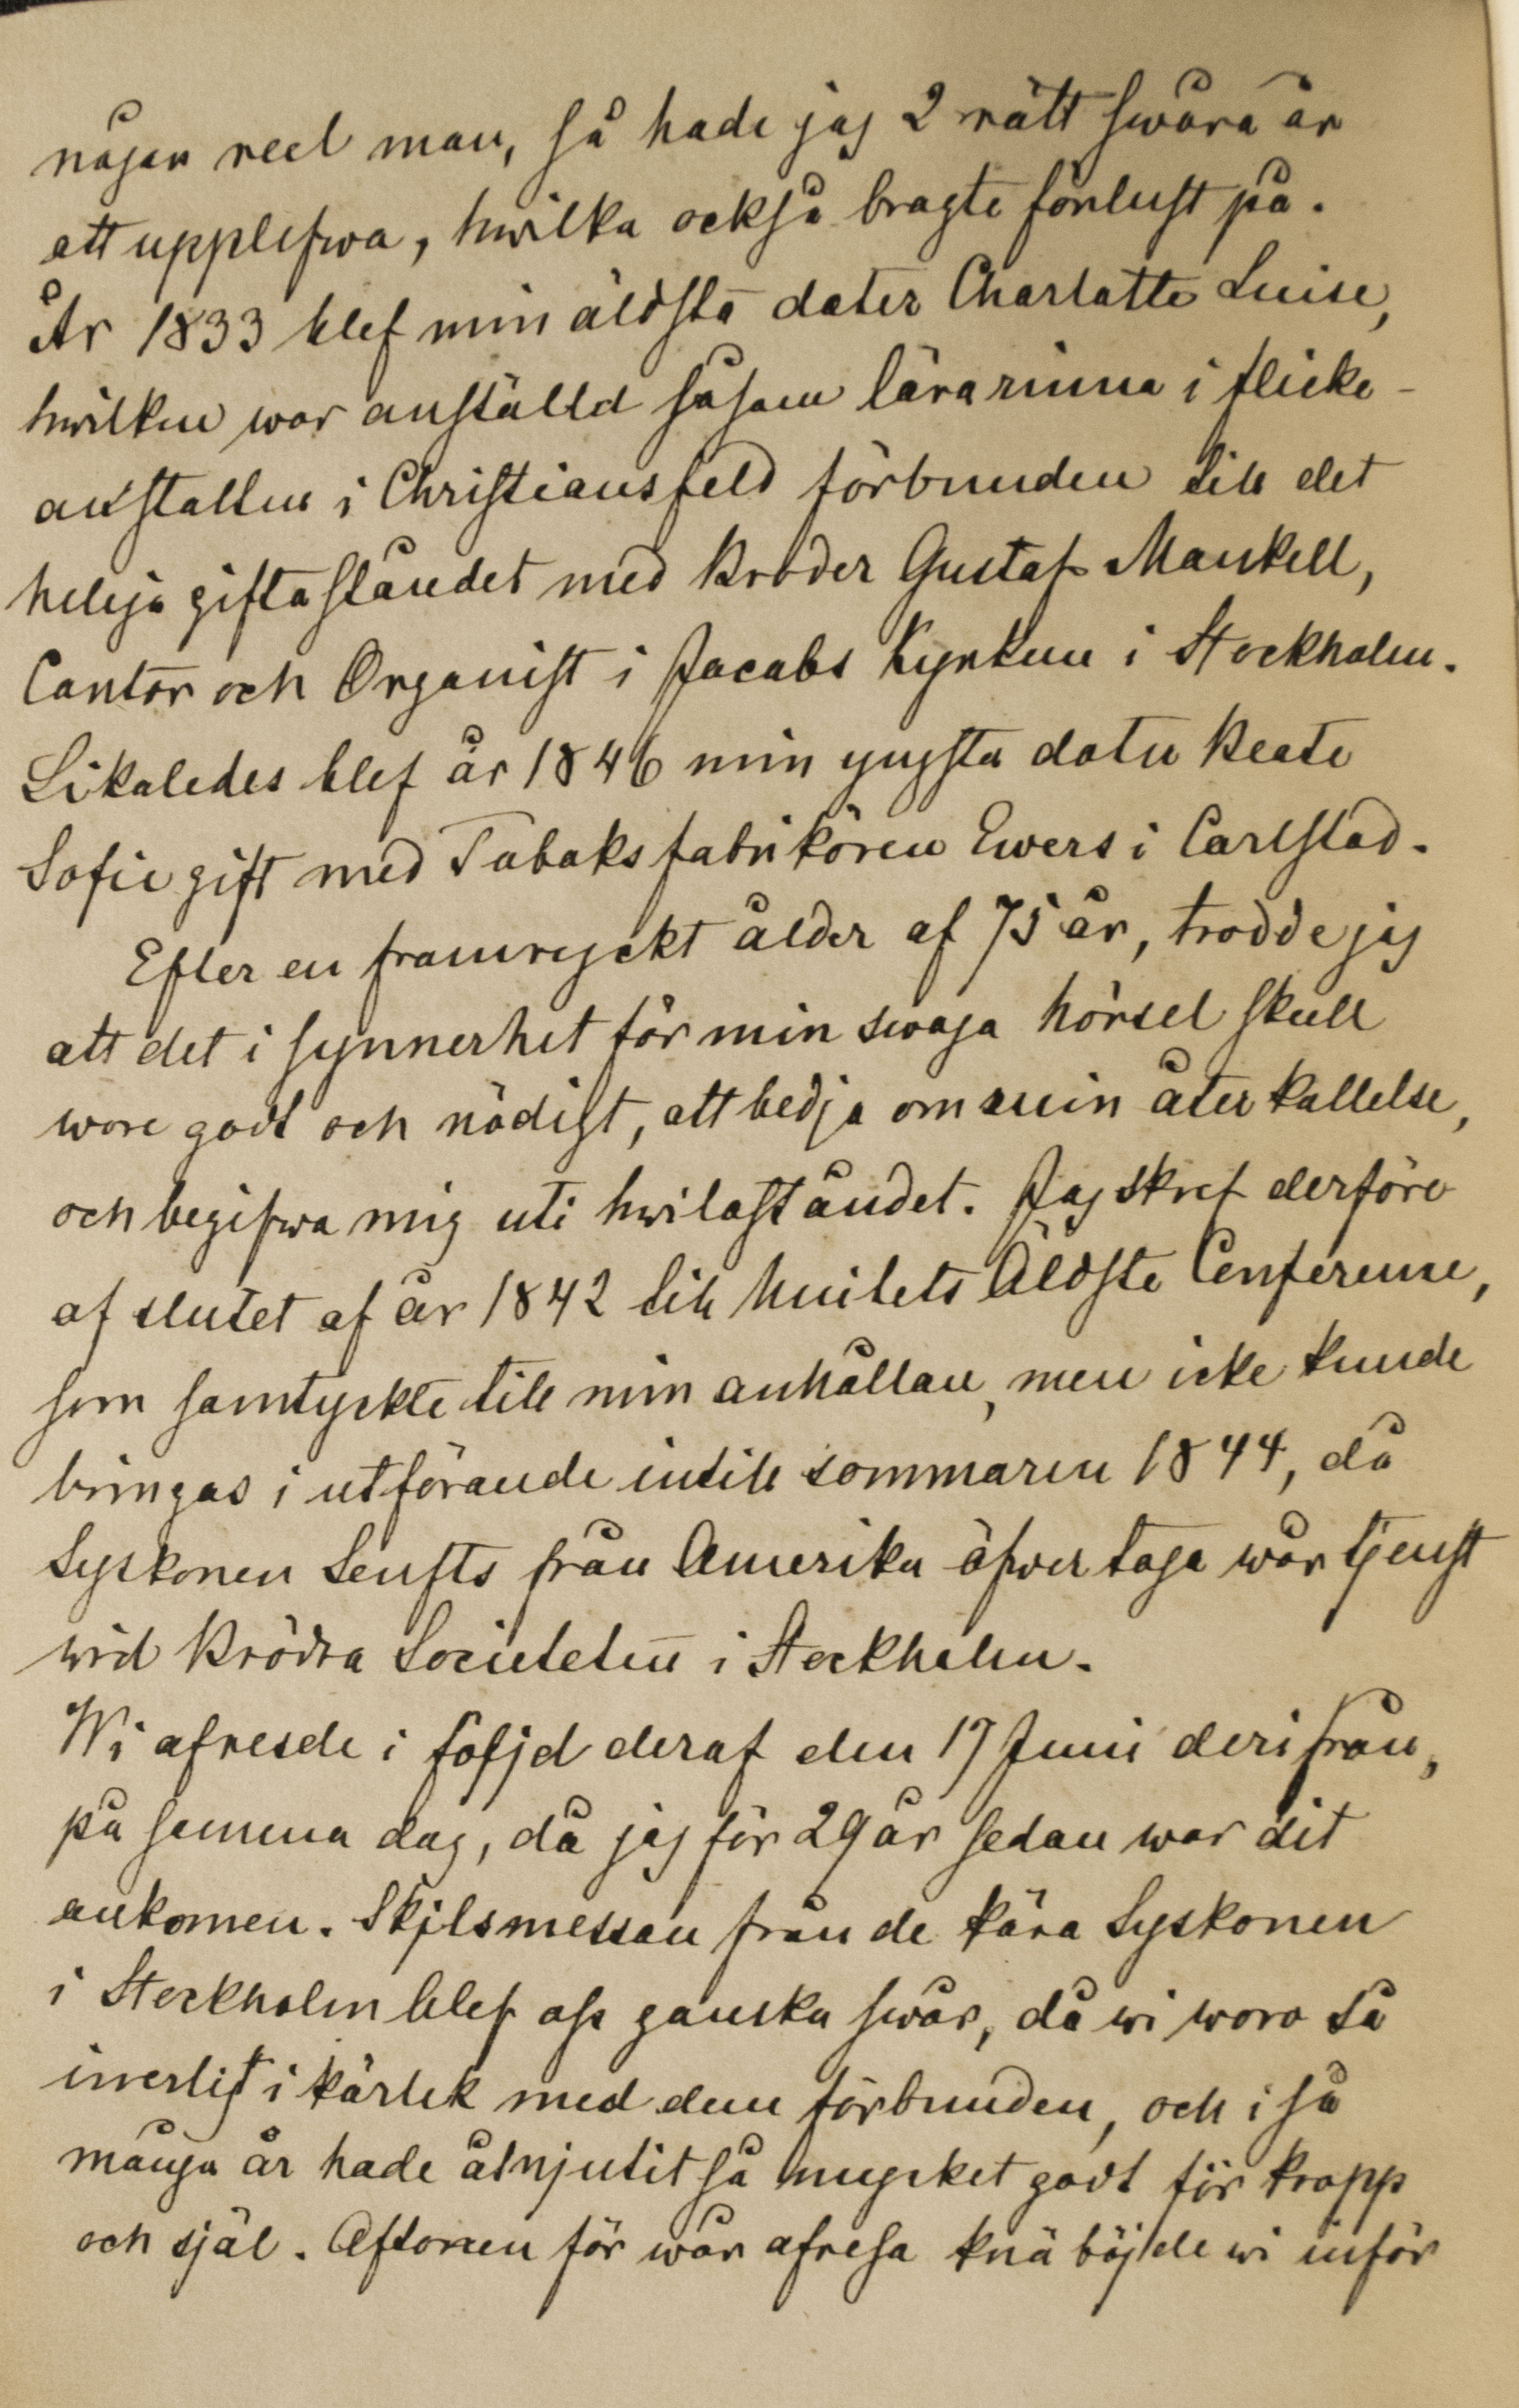 någen reel man, så hade jag 2 rätt swåra år
att upplefwa, hwilka också bragte förlust på.
År 1833 blef min äldsta doter Charlotte Luise,
hwilken war anställd såsom lärarinna i flicke-
anstalten i Christiansfeld förbunden till det
heliga giftaståndet med Broder Gustaf Mankell,
Cantor och Organist i Jacobs Kyrkan i Stockholm.
Likaledes blef år 1846 min yngsta doter Beate
Sofie gift med Tabaksfabrikören Ewers i Carlstad.
Efter en framryckt ålder af 75 år, trodde jag
att det i synnerhet för min swaga hörsel skull
wore godt och nödigt, att bedja om min återkallelse,
och begifwa mig uti hwilaståndet. Jag skref derföre
af slutet af år 1842 till Unitets Äldste Conferense,
som samtyckte till min anhållan, men icke kunde
bringas i utförande intill sommaren 1844, då
Syskonen Senfts från Amerika öfvertoga wår tjenst
wid Brödra Societeten i Stockholm.
Wi afresde i följd deraf den 17 Juni derifrån,
på samma dag, då jag för 29 år sedan war dit
ankomen. Skjlsmessan från de kära Syskonen
i Stockholm blef oss ganska swår, då wi woro så
innerligt i kärlek med dem förbunden, och i så
många år hade åtnjutit så mycket godt för kropp
och själ. Aftonen för wår afresa knäböjde wi inför